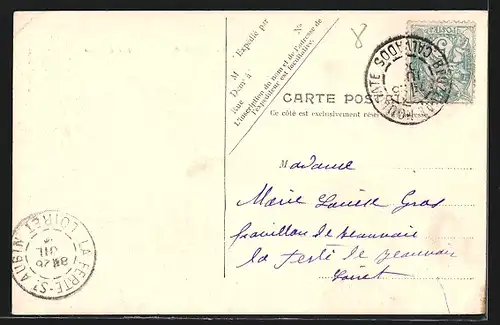 Expédié par
M
Demt à
Rue
No
L'inscription du nom et de l'adresse de
l'expéditeur est facultative.
8
POSTES
CALVADOS
CARTE POS
Ce côté est exclusivement réser
adresse.
Madame
Marie Louise Gras
Pavillon de Beauvais
la Ferté de Beauvais
Loiret
LA FERTÉ-ST-AUBIN
LOIRET